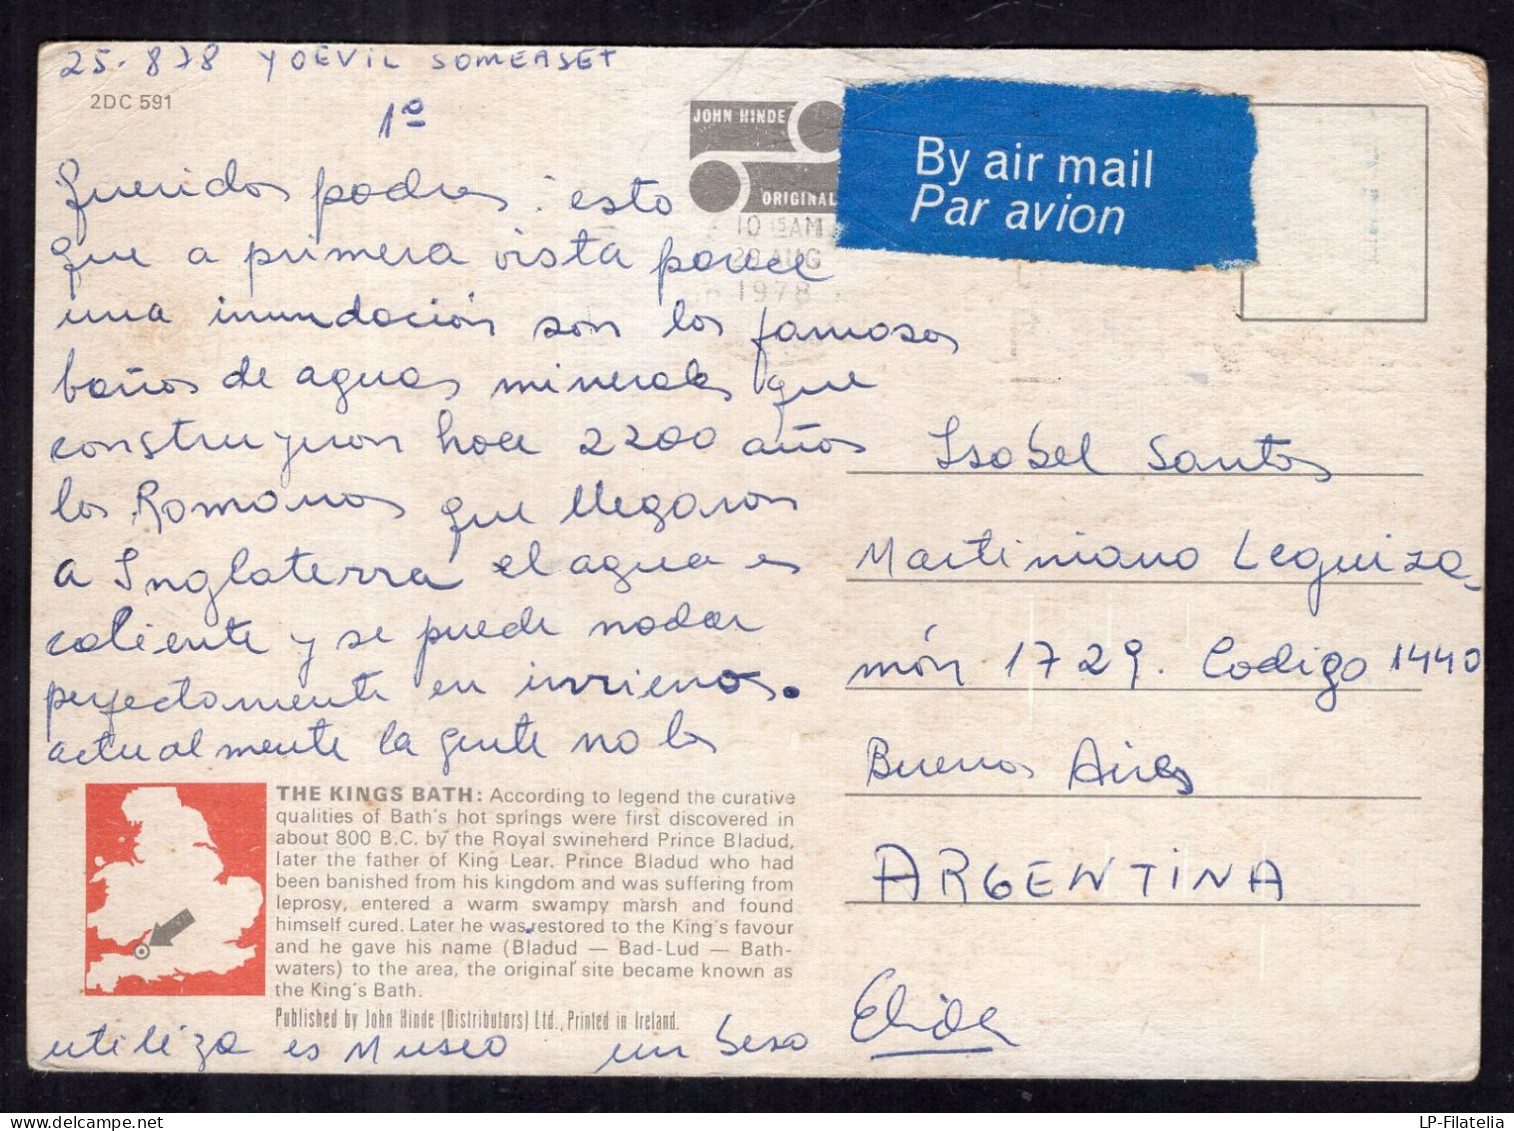 25.878 YOEVIL SOMERSET
2DC 591
1º
Queridos padres: esto
que a primera vista parece
una inundación son los famosos
baños de aguas minerales que
construyeron hace 2200 años
los Romanos que llegaron
a Inglaterra el agua es
caliente y se puede nadar
perfectamente en invierno.
actualmente la gente no la
THE KINGS BATH: According to legend the curative
qualities of Bath's hot springs were first discovered in
about 800 B.C. by the Royal swineherd Prince Bladud,
later the father of King Lear. Prince Bladud who had
been banished from his kingdom and was suffering from
leprosy, entered a warm swampy marsh and found
himself cured. Later he was restored to the King's favour
and he gave his name (Bladud — Bad-Lud — Bath-
waters) to the area, the original site became known as
the King's Bath.
Published by John Hinde (Distributors) Ltd., Printed in Ireland.
utiliza es Museo un beso Elida
JOHN HINDE
ORIGINAL
10 15AM
28 AUG
1978
By air mail
Par avion
Isabel Santos
Martiniano Leguiza-
món 1729. Codigo 1440
Buenos Aires
ARGENTINA
LP-Filatelia